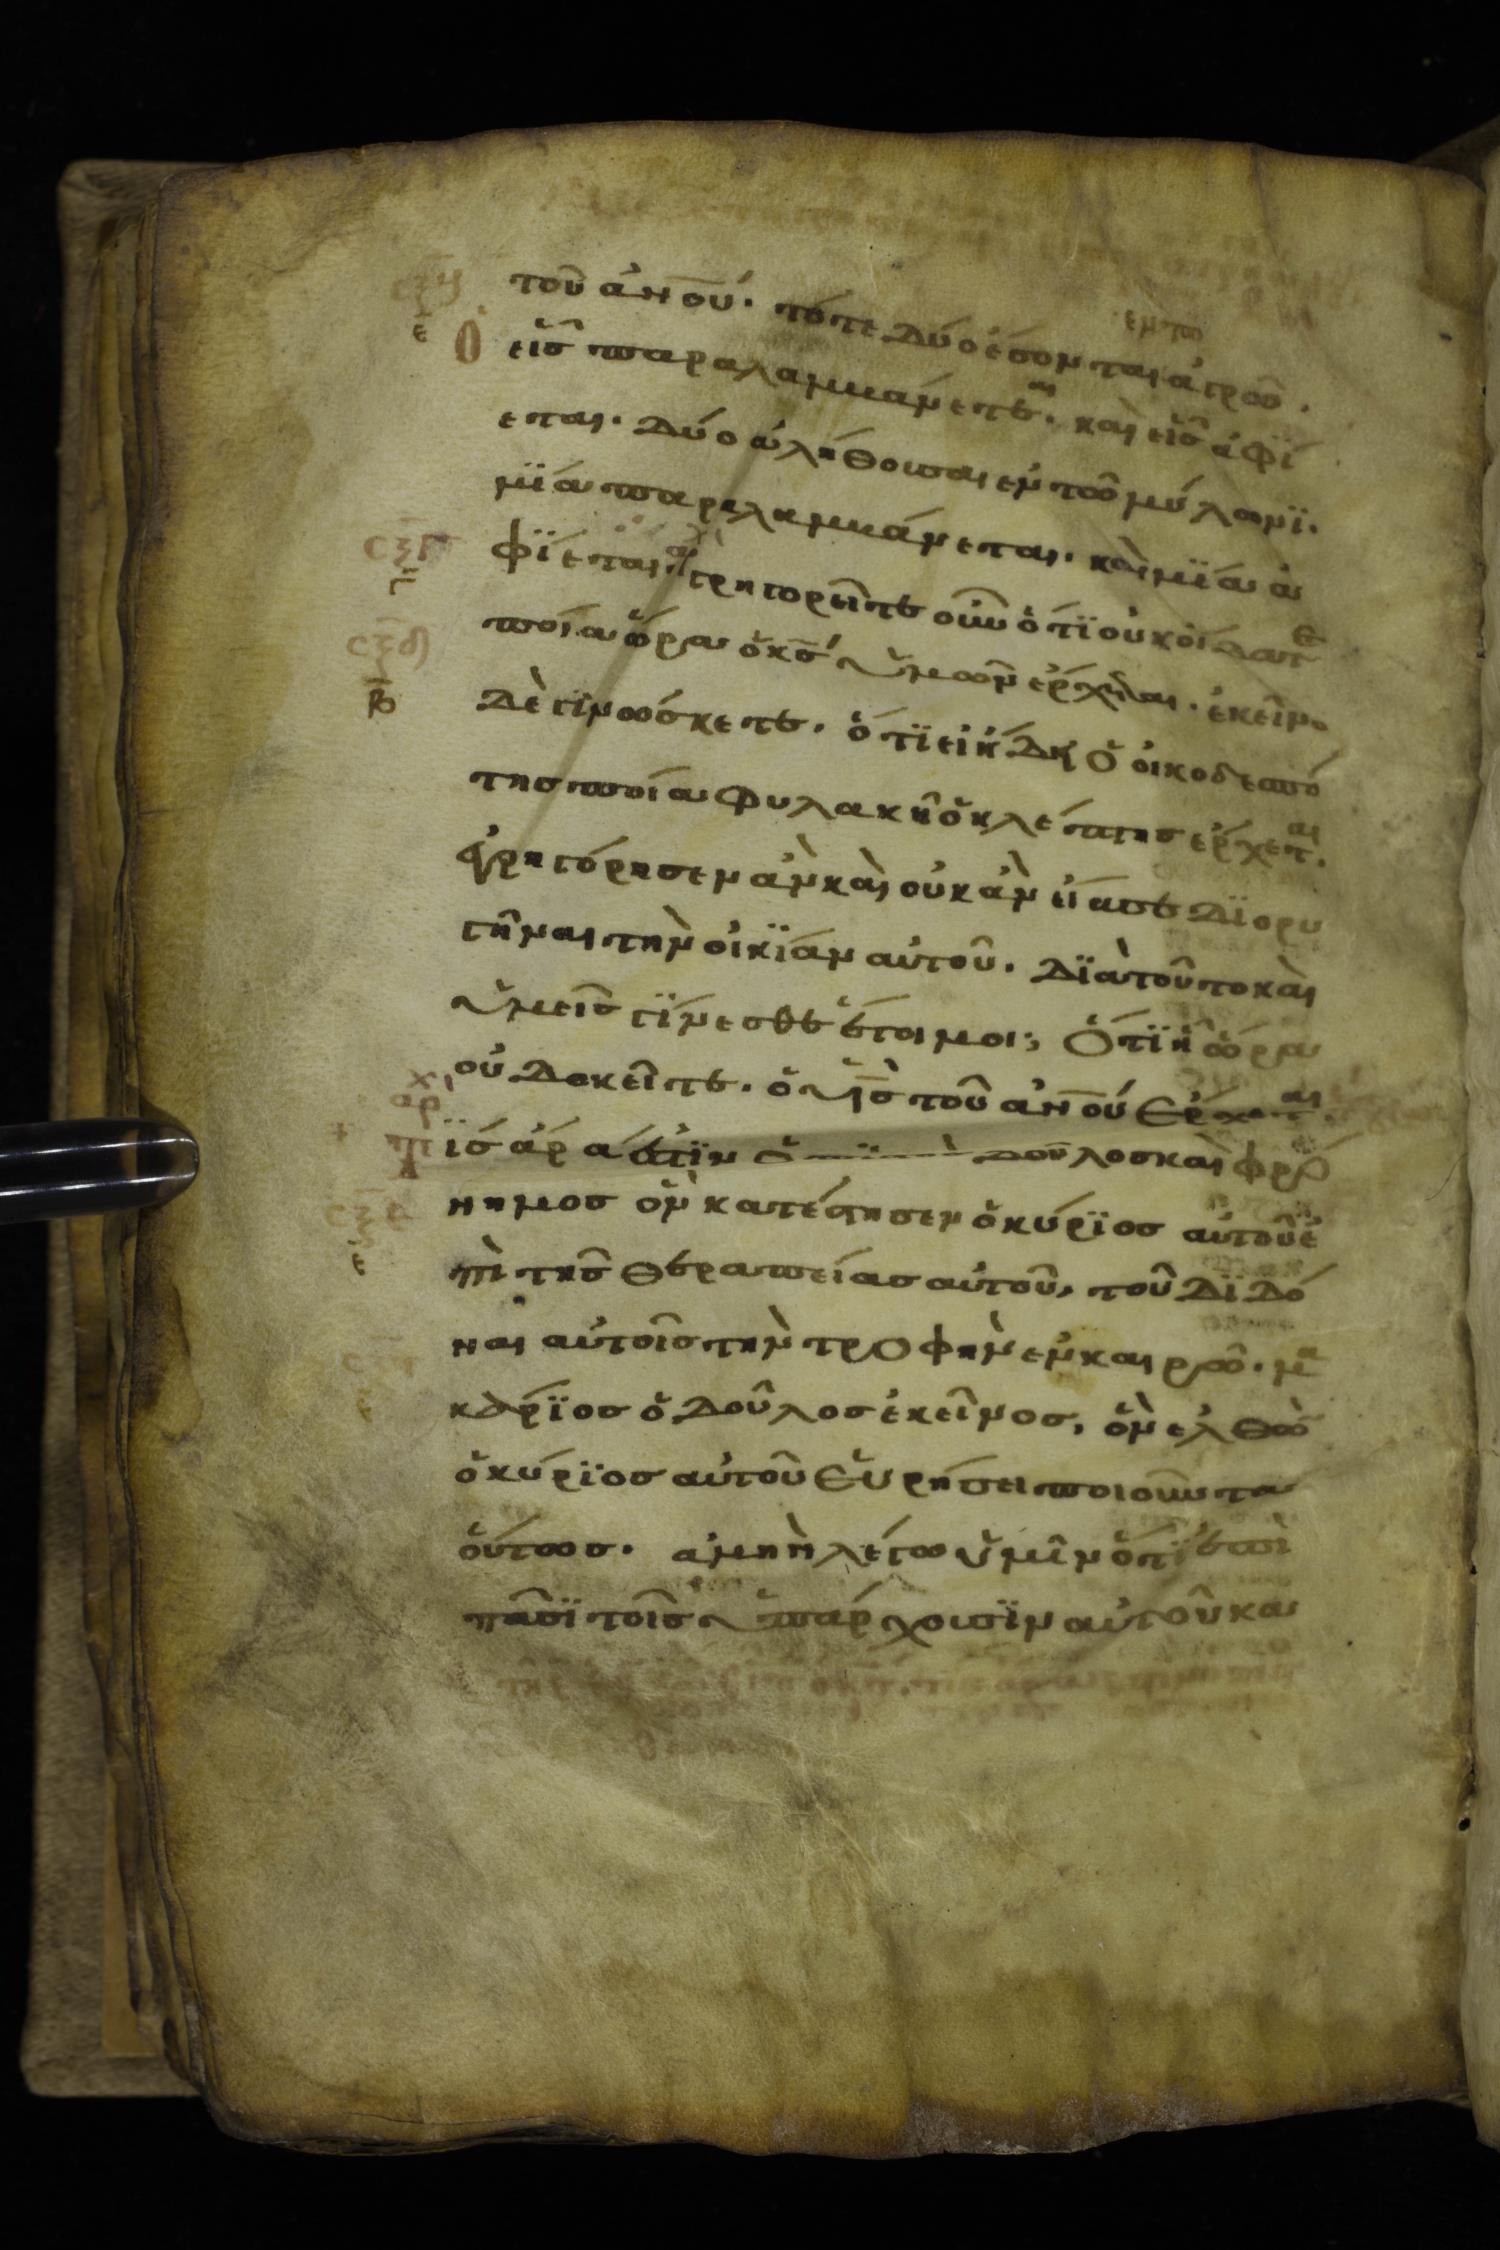 τοῦ ἀν̅ο̅υ̅· τότε δύο ἔσονται ἀγρῶ·
εἷς παραλαμβάνεται· καὶ εἷς ἀφΐ
εται· δύο ἀλήθουσαι ἐν τῶ μύλωνϊ·
μΐα παραλαμβάνεται· καὶ μΐα ἀ
φΐεται γρηγορεῖτε οὖν ὅτϊ οὐκ οἴδατε
ποία ὥρα ὁ κ̅ς̅ ὑμῶν ἔρχεται· ἐκεῖνο
δὲ γϊνώσκετε· ὅτϊ εἰ ἤδη ὁ οἰκοδεσπό
της ποία φυλακῆ ὁ κλέπτης ἔρχεται·
ἐγρηγόρησεν ἂν καὶ οὐκ ἂν εἴασε δϊορυ
γῆναι τὴν οἰκΐαν αὐτοῦ· δϊὰ τοῦτο καὶ
ὑμεῖς γΐνεσθε ἕτοιμοι· ὅτϊ ἧ ὥρα
οὐ δοκεῖτε· ὁ υ̅ς̅ τοῦ ἀν̅ο̅υ̅ ἔρχεται·
ϊς ἄρα ἐστϊν ὁ πϊστὸς δοῦλος καὶ φρό
νημος ὃν κατέστησεν ὁ κύρϊος αὐτοῦ ἐ
πὶ τῆς θεραπείας αὐτοῦ, τοῦ δϊδό
ναι αὐτοῖς τὴν τροφὴν ἐν καιρῶ· μα
κάρϊος ὁ δοῦλος ἐκεῖνος, ὃν ἐλθὼ
ὁ κύρϊος αὐτοῦ εὑρήσει ποιοῦντα
οὕτως· ἀμὴν λέγω ὑμῖν ὅτϊ ἐπὶ
πᾶσϊ τοῖς ὑπάρχουσϊν αὐτοῦ κα